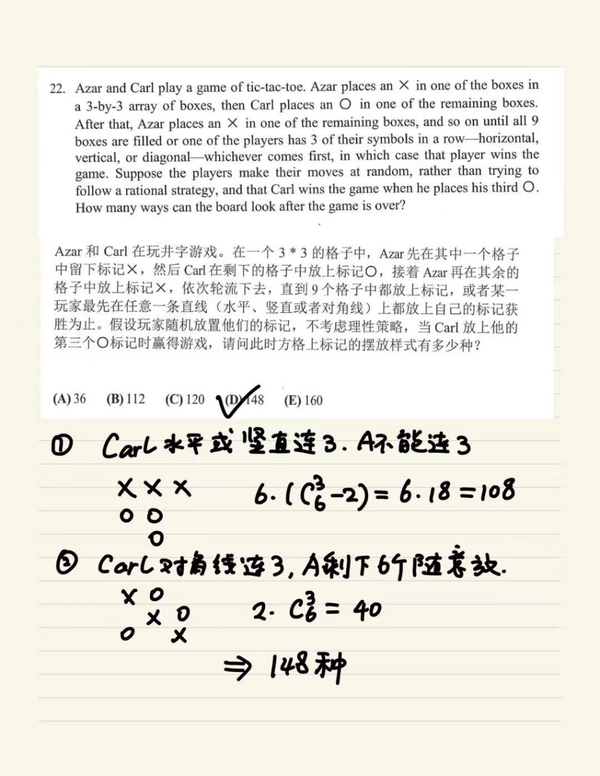 22. Azar and Carl play a game of tic-tac-toe. Azar places an × in one of the boxes in
a 3-by-3 array of boxes, then Carl places an O in one of the remaining boxes.
After that, Azar places an × in one of the remaining boxes, and so on until all 9
boxes are filled or one of the players has 3 of their symbols in a row—horizontal,
vertical, or diagonal—whichever comes first, in which case that player wins the
game. Suppose the players make their moves at random, rather than trying to
follow a rational strategy, and that Carl wins the game when he places his third O.
How many ways can the board look after the game is over?
Azar 和 Carl 在玩井字游戏。在一个 3 * 3 的格子中，Azar 先在其中一个格子
中留下标记×，然后 Carl 在剩下的格子中放上标记O，接着 Azar 再在其余的
格子中放上标记×，依次轮流下去，直到 9 个格子中都放上标记，或者某一
玩家最先在任意一条直线（水平、竖直或者对角线）上都放上自己的标记获
胜为止。假设玩家随机放置他们的标记，不考虑理性策略，当 Carl 放上他的
第三个O标记时赢得游戏，请问此时方格上标记的摆放样式有多少种？
(A) 36 (B) 112 (C) 120 (D) 148 (E) 160
① Carl 水平或竖直连3. A不能连3
× × ×
O O
O
6·(C₆³-2) = 6·18 = 108
② Carl 对角线连3, A剩下6个随意放.
× O
× O
O ×
2·C₆³ = 40
⇒ 148种